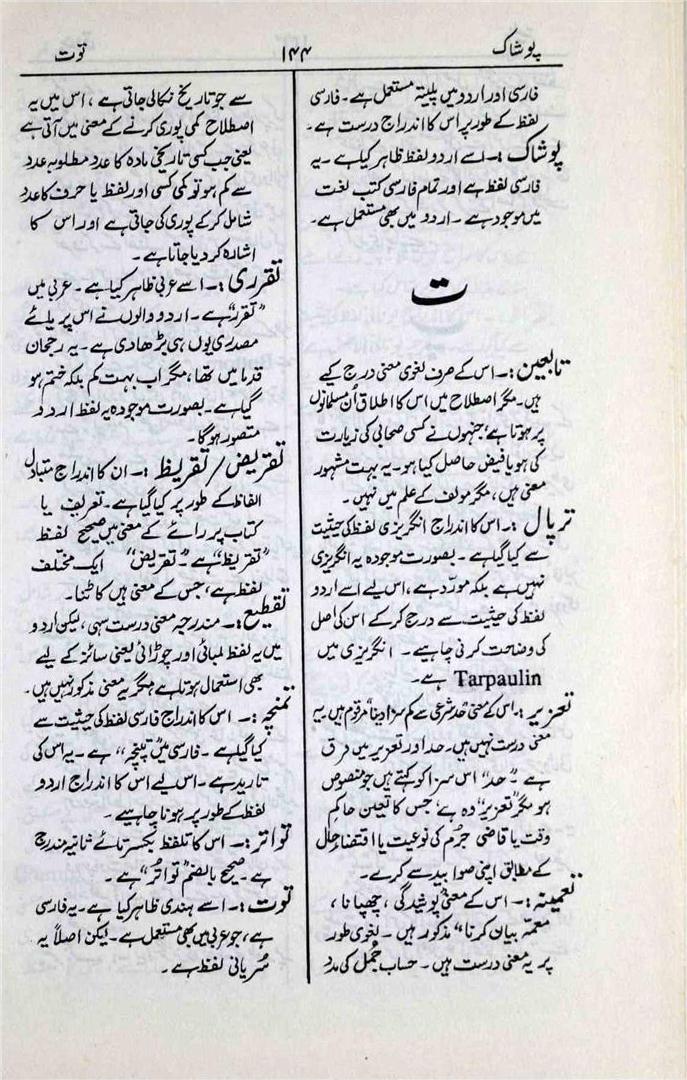 پوشاک
۱۴۴
توت
فارسی اور اردو میں پلیتہ مستعمل ہے۔ فارسی
لفظ کے طور پر اس کا اندراج درست ہے۔
پوشاک :۔ اسے اردو لفظ ظاہر کیا ہے۔ یہ
فارسی لفظ ہے اور تمام فارسی کتب لغت
میں موجود ہے۔ اردو میں بھی مستعمل ہے۔
ت
تابعین :۔ اس کے صرف لغوی معنی درج کیے
ہیں۔ مگر اصطلاح میں اس کا اطلاق اُن مسلمانوں
پر ہوتا ہے، جنہوں نے کسی صحابی کی زیارت
کی ہو یا فیض حاصل کیا ہو۔ یہ بہت مشہور
معنی ہیں، مگر مولف کے علم میں نہیں۔
ترپال :۔ اس کا اندراج انگریزی لفظ کی حیثیت
سے کیا گیا ہے۔ بصورت موجودہ یہ انگریزی
نہیں ہے بلکہ مورّد ہے، اس لیے اسے اردو
لفظ کی حیثیت سے درج کر کے اس کی اصل
کی وضاحت کرنی چاہیے۔ انگریزی میں
Tarpaulin ہے۔
تعزیر :۔ اس کے معنی "حد شرعی سے کم سزا دینا" مرقوم ہیں۔ یہ
معنی درست نہیں ہیں۔ حد اور تعزیر میں فرق
ہے۔ "حد" اس سزا کو کہتے ہیں جو منصوص
ہو مگر "تعزیر" وہ ہے، جس کا تعین حاکمِ
وقت یا قاضی جرُم کی نوعیت یا اقتضاءِ حال
کے مطابق اپنی صوابدید سے کرے۔
تعمیہ :۔ اس کے معنی "پوشیدگی، چھپانا،
معمّہ بیان کرنا" مذکور ہیں۔ لغوی طور
پر یہ معنی درست ہیں۔ حساب جُمل کی مدد
سے جو تاریخ نکالی جاتی ہے، اس میں یہ
اصطلاح کمی پوری کرنے کے معنی میں آتی ہے
یعنی جب کسی تاریخی مادہ کا عدد مطلوبہ عدد
سے کم ہو تو کمی کسی اور لفظ یا حرف کا عدد
شامل کر کے پوری کی جاتی ہے اور اس کا
اشارہ کر دیا جاتا ہے۔
تقرری :۔ اسے عربی ظاہر کیا ہے۔ عربی میں
"تقرر" ہے۔ اردو والوں نے اس پر یائے
مصدری یوں ہی بڑھا دی ہے۔ یہ رجحان
قدما میں تھا، مگر اب بہت کم بلکہ ختم ہو
گیا ہے۔ بصورت موجودہ یہ لفظ اردو
متصور ہوگا۔
تقریض / تقریظ :۔ ان کا اندراج متبادل
الفاظ کے طور پر کیا گیا ہے۔ تعریف یا
کتاب پر رائے کے معنی میں صحیح لفظ
"تقریظ" ہے۔ "تقریض" ایک مختلف
لفظ ہے، جس کے معنی ہیں کاٹنا۔
تقطیع :۔ مندرجہ معنی درست سہی، لیکن اردو
میں یہ لفظ لمبائی اور چوڑائی یعنی سائز کے لیے
بھی استعمال ہوتا ہے مگر یہ معنی مذکور نہیں ہیں۔
تمنچہ :۔ اس کا اندراج فارسی لفظ کی حیثیت سے
کیا گیا ہے۔ فارسی میں "تپنچہ" ہے۔ یہ اس کی
تارید ہے۔ اس لیے اس کا اندراج اردو
لفظ کے طور پر ہونا چاہیے۔
تواتر :۔ اس کا تلفظ بکسر تائے ثانیہ مندرج
ہے۔ صحیح بالضم "تواتُر" ہے۔
توت :۔ اسے ہندی ظاہر کیا ہے۔ یہ فارسی
ہے، جو عربی میں بھی مستعمل ہے۔ لیکن اصلاً یہ
سُریانی لفظ ہے۔